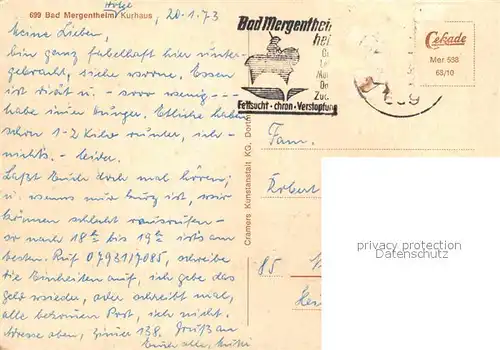 Hotel
699 Bad Mergentheim/ Kurhaus
20-1.73
Meine Lieben,
bin ganz fabelhaft hier unter-
gebracht, siehe vorne. Essen
ist diät u. - sooo wenig ----
habe immer Hunger. Etliche haben
schon 1-2 Kilo runter, ich -
nichts. - leider.
Laßt Euch doch mal hören;
u. wenns nur kurz ist, wir
können schlecht rausrufen -
so nach 18 bis 19 ists am
besten. Ruf 07931/7085, schreibe
die Einheiten auf, ich gebe das
Geld wieder, oder schreibt mal,
alle bekommen Post, ich nicht.
Adresse oben, Zimmer 138. Gruß an
Euch alle,
Bad Mergentheim
Fettsucht · chron · Verstopfung
Cekade
Mer 538
63/10
Cramers Kunstanstalt KG, Dortm
Fam.
Robert
85
privacy protection
Datenschutz